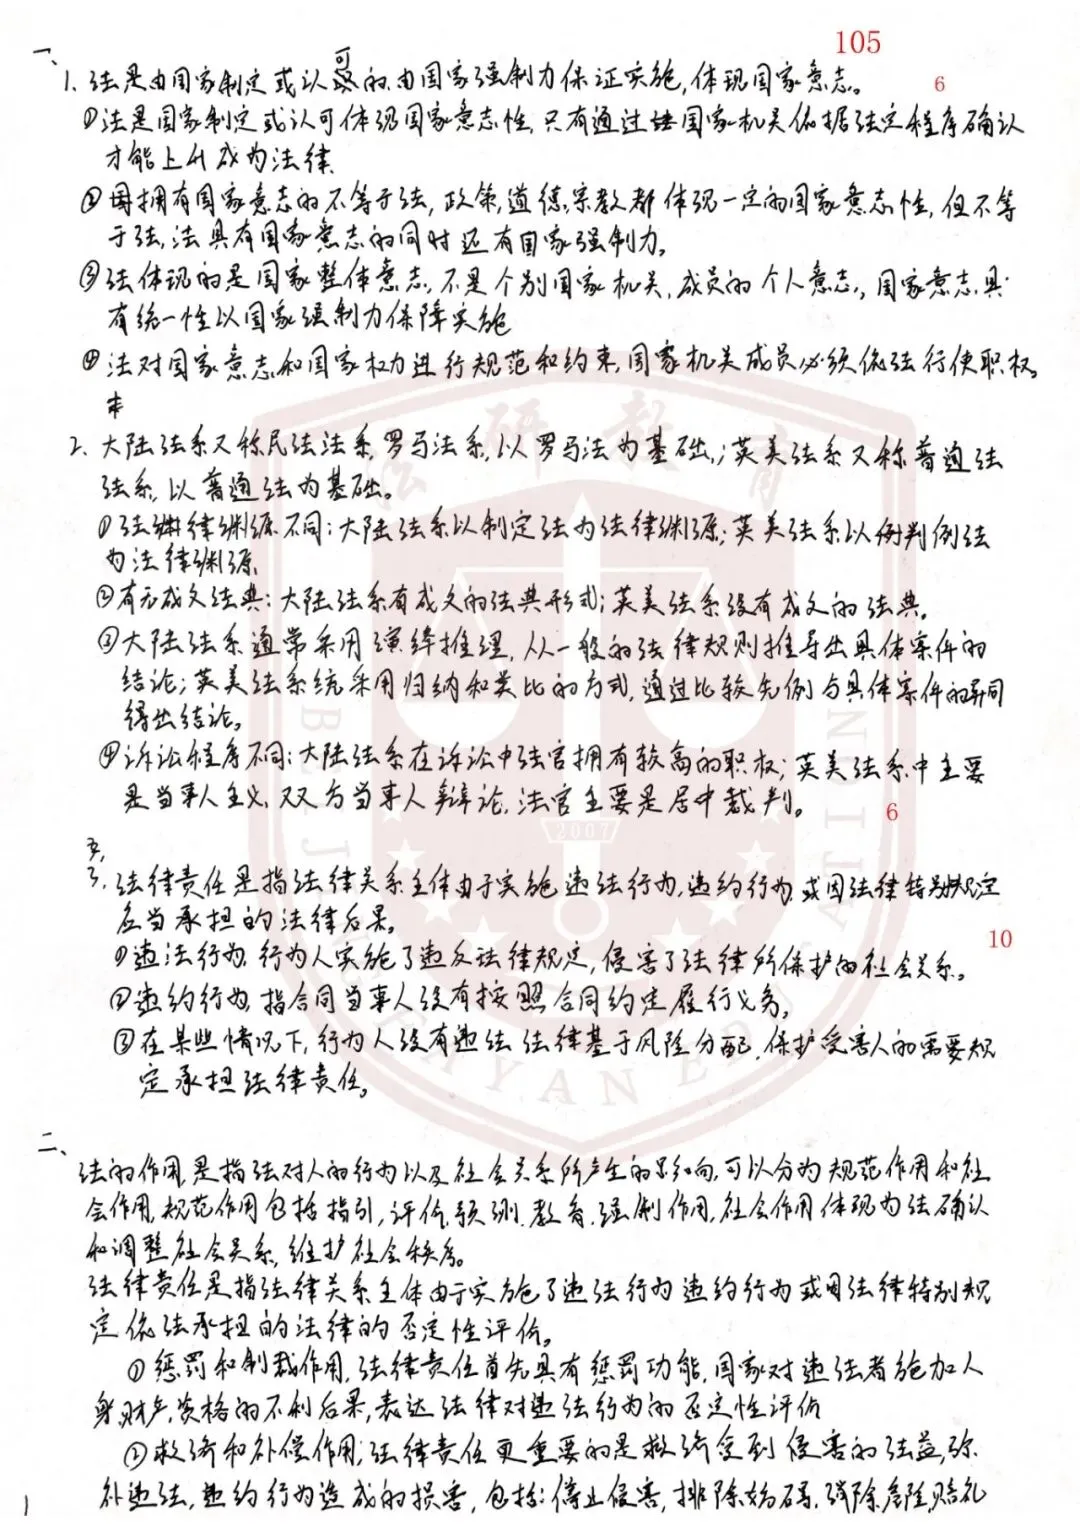 105
一、
1. 法是由国家制定或认可的由国家强制力保证实施,体现国家意志。 6
①法是国家制定或认可体现国家意志性,只有通过国家机关依据法定程序确认
才能上升成为法律.
②拥有国家意志的不等于法,政策,道德,宗教都体现一定的国家意志性,但不等
于法,法具有国家意志的同时还有国家强制力。
③法体现的是国家整体意志,不是个别国家机关,成员的个人意志,国家意志具
有统一性以国家强制力保障实施
④法对国家意志和国家权力进行规范和约束,国家机关成员必须依法行使职权。
2. 大陆法系又称民法法系,罗马法系,以罗马法为基础,;英美法系又称普通法
法系,以普通法为基础。
①法律渊源不同:大陆法系以制定法为法律渊源;英美法系以判例法
为法律渊源.
②有无成文法典:大陆法系有成文的法典形式;英美法系没有成文的法典。
③大陆法系通常采用演绎推理,从一般的法律规则推导出具体案件的
结论;英美法系统采用归纳和类比的方式,通过比较先例与具体案件的异同
得出结论。
④诉讼程序不同:大陆法系在诉讼中法官拥有较高的职权;英美法系中主要
是当事人主义,双方当事人辩论,法官主要是居中裁判。
6
3. 法律责任是指法律关系主体由于实施违法行为,违约行为,或因法律特别规定
应当承担的法律后果。
10
①违法行为,行为人实施了违反法律规定,侵害了法律所保护的社会关系。
②违约行为,指合同当事人没有按照合同约定履行义务。
③在某些情况下,行为人没有违法法律基于风险分配,保护受害人的需要规
定承担法律责任。
二、
法的作用是指法对人的行为以及社会关系所产生的影响,可以分为规范作用和社
会作用,规范作用包括指引,评价,预测,教育,强制作用,社会作用体现为法确认
和调整社会关系,维护社会秩序。
法律责任是指法律关系主体由于实施了违法行为违约行为或因法律特别规
定依法承担的法律的否定性评价。
①惩罚和制裁作用,法律责任首先具有惩罚功能,国家对违法者施加人
身,财产,资格的不利后果,表达法律对违法行为的否定性评价
②救济和补偿作用;法律责任更重要的是救济受到侵害的法益,弥
补违法,违约行为造成的损害,包括:停止侵害,排除妨碍,消除危险,赔礼
法研教育
BEIJING FAYAN EDUCATION
2007